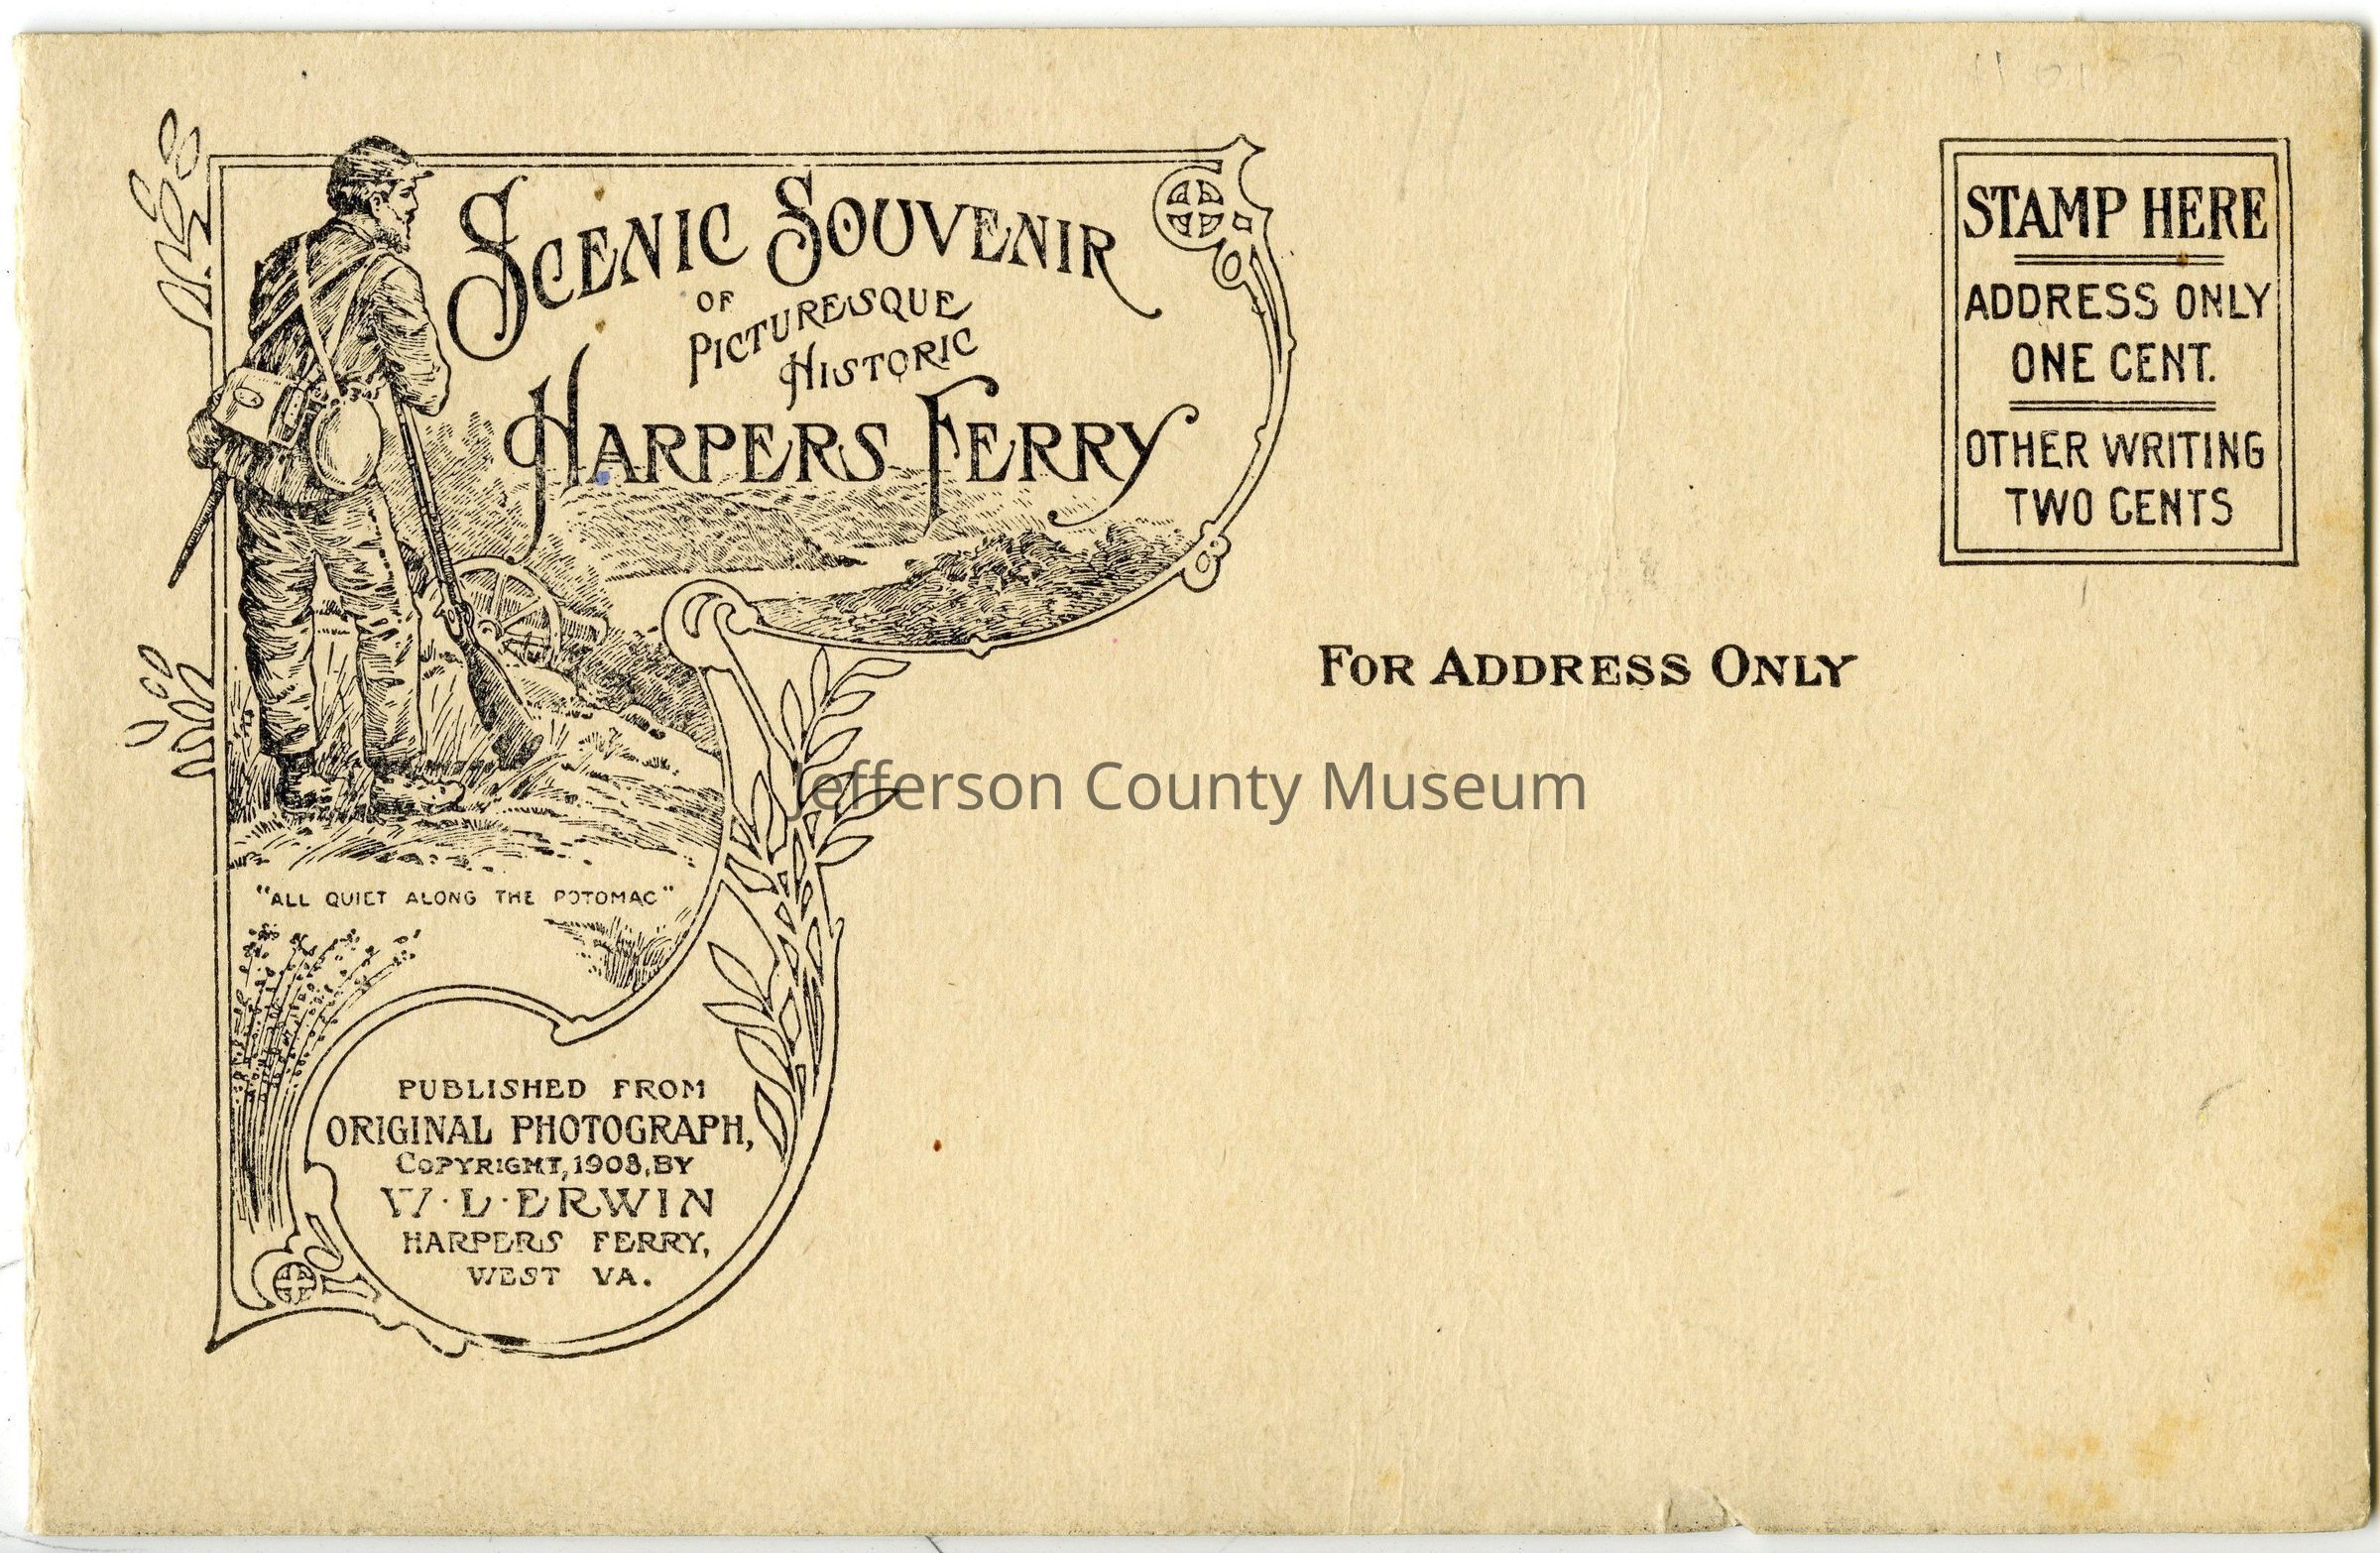 SCENIC SOUVENIR
OF
PICTURESQUE
HISTORIC
HARPERS FERRY
"ALL QUIET ALONG THE POTOMAC"
PUBLISHED FROM
ORIGINAL PHOTOGRAPH,
COPYRIGHT, 1908, BY
W. L. ERWIN
HARPERS FERRY,
WEST VA.
STAMP HERE
ADDRESS ONLY
ONE CENT.
OTHER WRITING
TWO CENTS
FOR ADDRESS ONLY
Jefferson County Museum